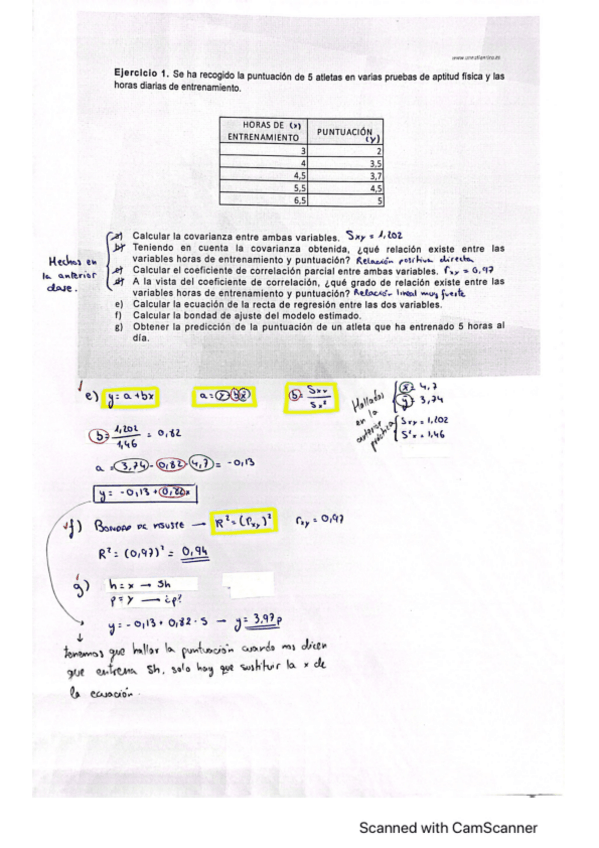 Ejercicio 1. Se ha recogido la puntuación de 5 atletas en varias pruebas de aptitud física y las
horas diarias de entrenamiento.
HORAS DE (x) ENTRENAMIENTO PUNTUACIÓN (y)
3 2
4 3,5
4,5 3,7
5,5 4,5
6,5 5
Hechos en
la anterior
clase.
a) Calcular la covarianza entre ambas variables. Sxy = 1,202
b) Teniendo en cuenta la covarianza obtenida, ¿qué relación existe entre las
variables horas de entrenamiento y puntuación? Relación positiva directa
c) Calcular el coeficiente de correlación parcial entre ambas variables. rxy = 0,97
d) A la vista del coeficiente de correlación, ¿qué grado de relación existe entre las
variables horas de entrenamiento y puntuación? Relación lineal muy fuerte
e) Calcular la ecuación de la recta de regresión entre las dos variables.
f) Calcular la bondad de ajuste del modelo estimado.
g) Obtener la predicción de la puntuación de un atleta que ha entrenado 5 horas al
día.
e) y = a + bx
b = Sxy / Sx²
Hallados
en la
anterior
práctica
x̄ = 4,7
ȳ = 3,74
Sxy = 1,202
S²x = 1,46
b = 1,202 / 1,46 = 0,82
a = 3,74 - 0,82 · 4,7 = -0,13
y = -0,13 + 0,82x
f) BONDAD DE AJUSTE → R² = (rxy)² rxy = 0,97
R² = (0,97)² = 0,94
g) h = x → 5h
p = y → ¿p?
y = -0,13 + 0,82 · 5 → y = 3,97p
tenemos que hallar la puntuación cuando nos dicen
que entrena 5h, solo hay que sustituir la x de
la ecuación.
Scanned with CamScanner